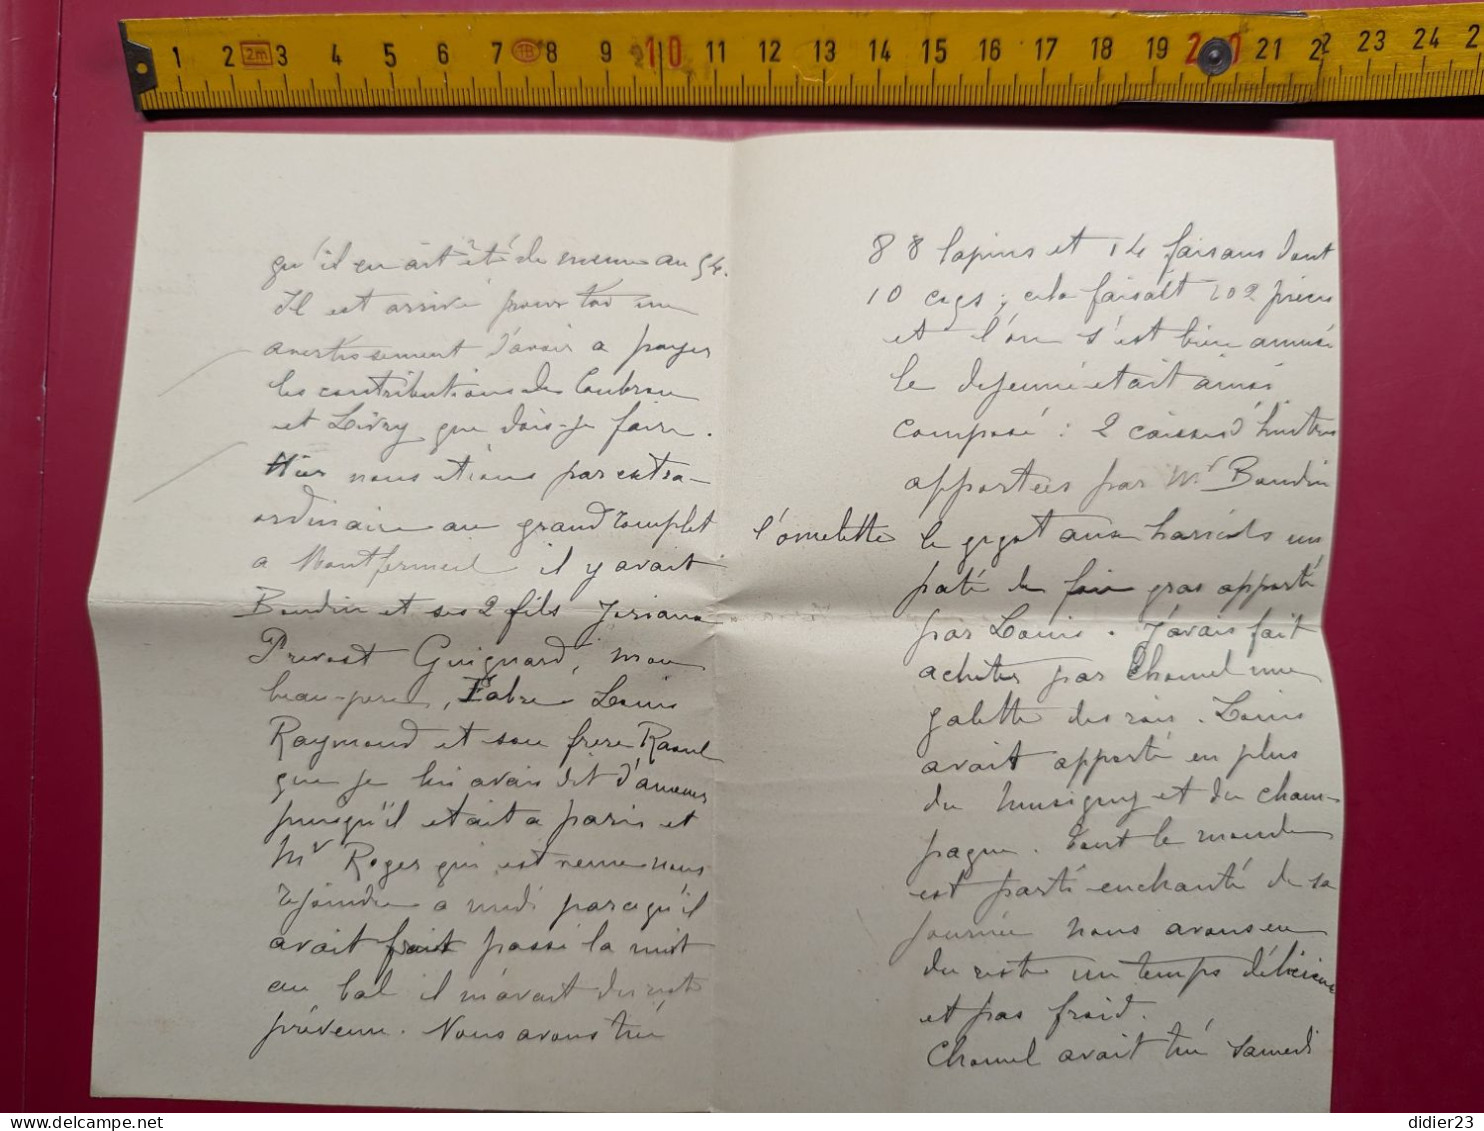 1 2 2m 3 4 5 6 7 8 9 10 11 12 13 14 15 16 17 18 19 20 21 22 23 24 2
qu'il en ait été de même au 54.
Il est arrivé pour toi un
avertissement d'avoir a payer
les contributions de Coubron
et Livry que dois-je faire.
Hier nous etions par extra-
ordinaire au grand complet
a Montfermeil il y avait
Baudin et ses 2 fils
Prevost Guignard, mon
beau-pere, Fabre Louis
Raymond et son frere Raoul
que je lui avais dit d'amener
puisqu'il etait a Paris et
Mr Roger qui est venu nous
rejoindre a midi parcequ'il
avait passé la nuit
au bal il m'avait du reste
prévenu. Nous avons tué
88 lapins et 14 faisans dont
10 coqs; cela faisait 102 pièces
et l'on s'est bien amusé
le dejeuné etait ainsi
composé : 2 caisses d'huitres
apportées par Mr Baudin
l'omelette le gigot aux haricots un
paté de foie gras apporté
par Louis. J'avais fait
acheter par Chomel une
galette des rois. Louis
avait apporté en plus
du Musigny et du cham-
pagne. Tout le monde
est parti enchanté de sa
journée nous avons eu
du reste un temps délicieux
et pas froid.
Chomel avait tué samedi
didier23